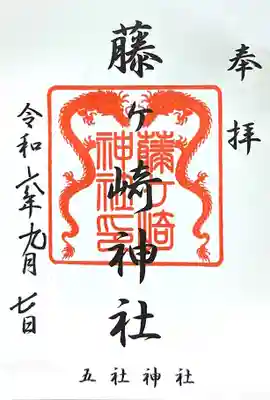 奉拝
藤ヶ崎神社
藤ヶ崎
神社印
令和六年九月七日
五社神社